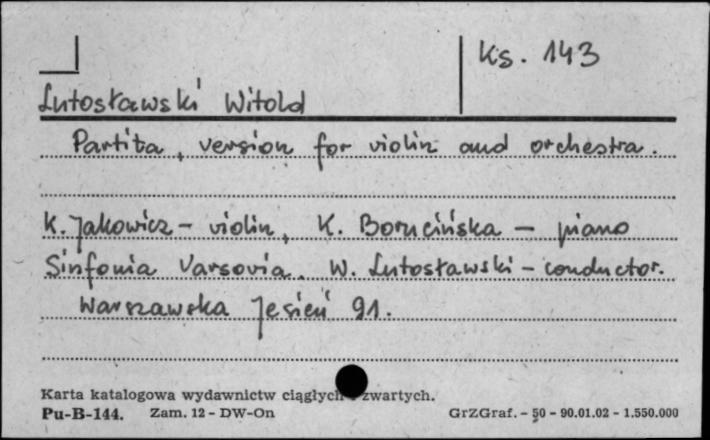 Ks. 143
Lutosławski Witold
Partita, version for violin and orchestra.
K. Jakowicz - violin, K. Borucińska - piano
Sinfonia Varsovia. W. Lutosławski - conductor.
Warszawska Jesień 91.
Karta katalogowa wydawnictw ciągłych zwartych.
Pu-B-144. Zam. 12 - DW-On GrZGraf. - 50 - 90.01.02 - 1.550.000